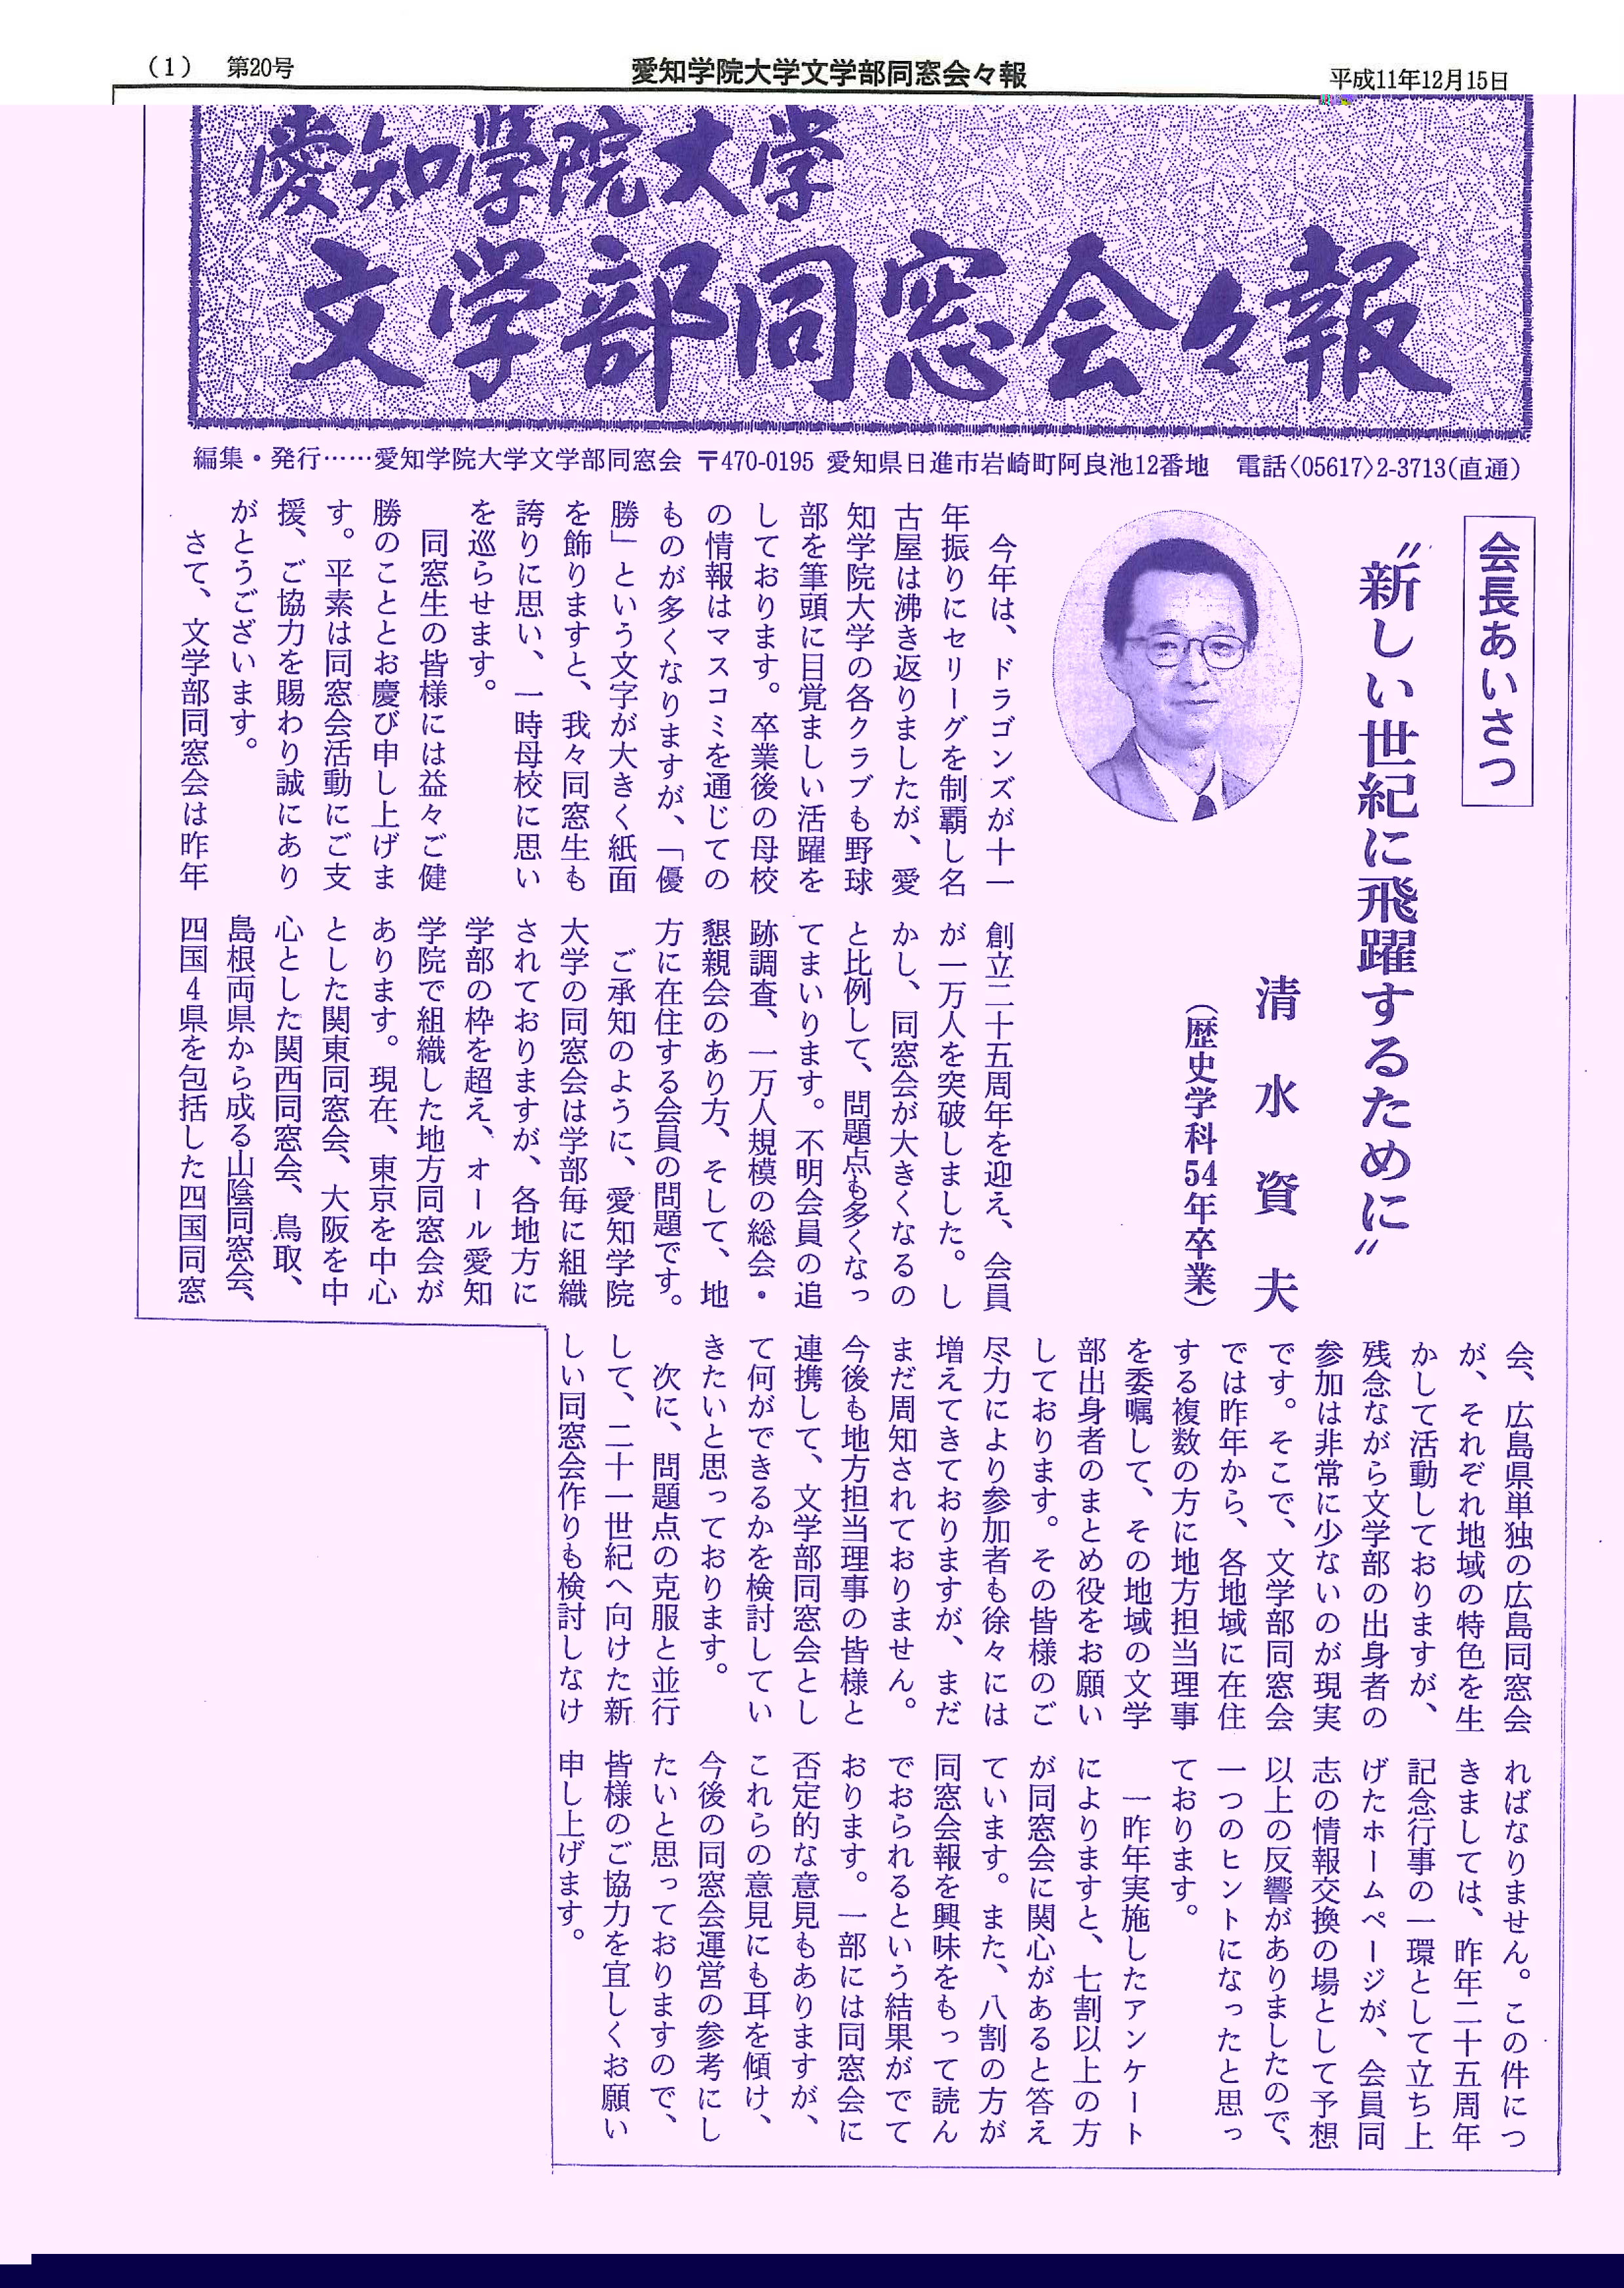 (1) 第20号 愛知学院大学文学部同窓会々報 平成11年12月15日
愛知学院大学
文学部同窓会々報
編集・発行……愛知学院大学文学部同窓会 〒470-0195 愛知県日進市岩崎町阿良池12番地 電話〈05617〉2-3713(直通)
会長あいさつ
〝新しい世紀に飛躍するために〟
清水資夫
(歴史学科54年卒業)
今年は、ドラゴンズが十一
年振りにセリーグを制覇し名
古屋は沸き返りましたが、愛
知学院大学の各クラブも野球
部を筆頭に目覚ましい活躍を
しております。卒業後の母校
の情報はマスコミを通じての
ものが多くなりますが、「優
勝」という文字が大きく紙面
を飾りますと、我々同窓生も
誇りに思い、一時母校に思い
を巡らせます。
同窓生の皆様には益々ご健
勝のこととお慶び申し上げま
す。平素は同窓会活動にご支
援、ご協力を賜わり誠にあり
がとうございます。
さて、文学部同窓会は昨年
創立二十五周年を迎え、会員
が一万人を突破しました。し
かし、同窓会が大きくなるの
と比例して、問題点も多くなっ
てまいります。不明会員の追
跡調査、一万人規模の総会・
懇親会のあり方、そして、地
方に在住する会員の問題です。
ご承知のように、愛知学院
大学の同窓会は学部毎に組織
されておりますが、各地方に
学部の枠を超え、オール愛知
学院で組織した地方同窓会が
あります。現在、東京を中心
とした関東同窓会、大阪を中
心とした関西同窓会、鳥取、
島根両県から成る山陰同窓会、
四国4県を包括した四国同窓
会、広島県単独の広島同窓会
が、それぞれ地域の特色を生
かして活動しておりますが、
残念ながら文学部の出身者の
参加は非常に少ないのが現実
です。そこで、文学部同窓会
では昨年から、各地域に在住
する複数の方に地方担当理事
を委嘱して、その地域の文学
部出身者のまとめ役をお願い
しております。その皆様のご
尽力により参加者も徐々には
増えてきておりますが、まだ
まだ周知されておりません。
今後も地方担当理事の皆様と
連携して、文学部同窓会とし
て何ができるかを検討してい
きたいと思っております。
次に、問題点の克服と並行
して、二十一世紀へ向けた新
しい同窓会作りも検討しなけ
ればなりません。この件につ
きましては、昨年二十五周年
記念行事の一環として立ち上
げたホームページが、会員同
志の情報交換の場として予想
以上の反響がありましたので、
一つのヒントになったと思っ
ております。
一昨年実施したアンケート
によりますと、七割以上の方
が同窓会に関心があると答え
ています。また、八割の方が
同窓会報を興味をもって読ん
でおられるという結果がでて
おります。一部には同窓会に
否定的な意見もありますが、
これらの意見にも耳を傾け、
今後の同窓会運営の参考にし
たいと思っておりますので、
皆様のご協力を宜しくお願い
申し上げます。